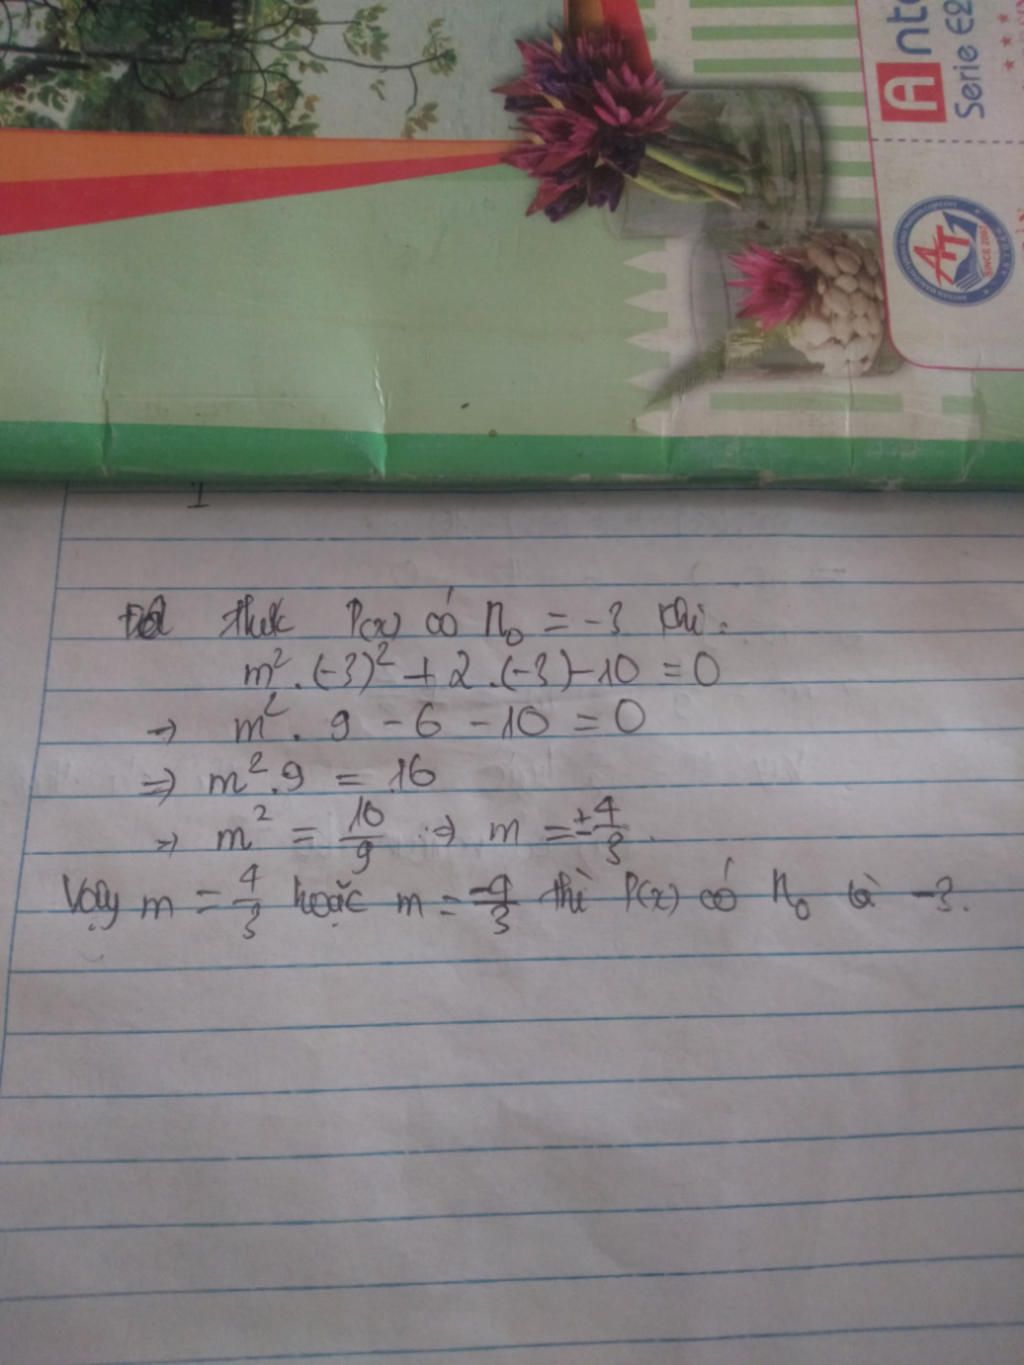 A nto
Serie E2
ATI
SINCE 2007
thức P(x) có n₀ = -3 khi:
m². (-3)² + 2.(-3)-10 = 0
→ m². 9 - 6 - 10 = 0
=> m².9 = 16
→ m² = 10/9 => m = ±4/3.
Vậy m = 4/3 hoặc m = -4/3 thì P(x) có n₀ là -3.